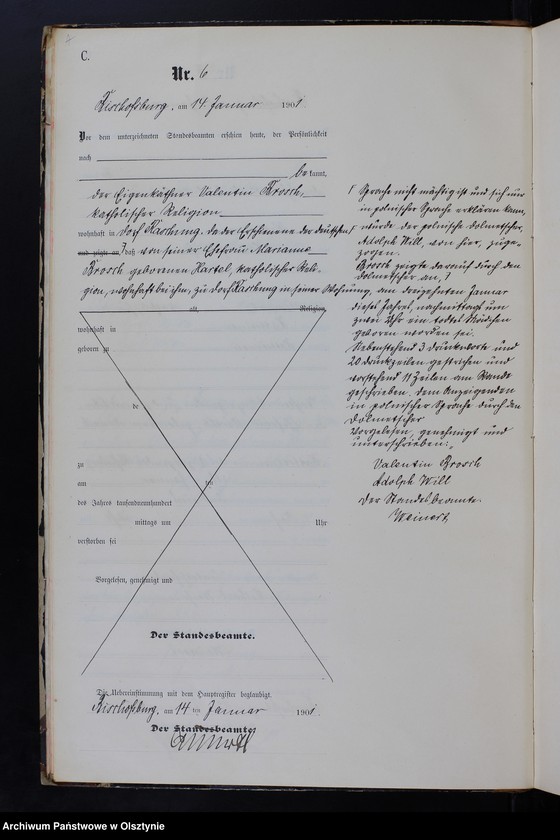 C.
Nr. 6
Bischofsburg, am 14. Januar 1901.
Vor dem unterzeichneten Standesbeamten erschien heute, der Persönlichkeit
nach
bekannt,
der Eigenkäthner Valentin Brosch,
katholischer Religion
wohnhaft in Dorf, da der Erschienene der deutschen
und zeigte an, daß von seiner Ehefrau Marianne
Brosch geborenen Hartel, katholischer Reli-
gion, wohnhaft bei ihm, zu Dorf in seiner Wohnung, am dreizehnten Januar
Sprache nicht mächtig ist und sich nur
in polnischer Sprache erklären kann,
wurde der polnische Dolmetscher,
Adolph Will, von hier, zuge-
zogen.
Brosch zeigte darauf durch den
Dolmetscher an,
dieses Jahres, nachmittags um
zwei Uhr ein todtes Mädchen
geboren worden sei.
Nebenstehend 3 Druckworte und
20 Druckzeilen gestrichen und
vorstehend 11 Zeilen am Rande
geschrieben, dem Anzeigenden
in polnischer Sprache durch den
Dolmetscher
vorgelesen, genehmigt und
unterschrieben:
Valentin Brosch
Adolph Will
Der Standesbeamte.
Weinert
alt, Religion,
wohnhaft in
geboren zu
de
zu
am ten
des Jahres tausendneunhundert
mittags um Uhr
verstorben sei
Vorgelesen, genehmigt und
Der Standesbeamte.
Die Uebereinstimmung mit dem Hauptregister beglaubigt.
Bischofsburg, am 14 ten Januar 1901.
Der Standesbeamte
Weinert
Archiwum Państwowe w Olsztynie